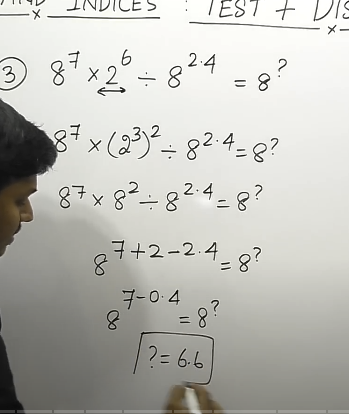 INDICES : TEST +
3 8⁷ × 2⁶ ÷ 8^2.4 = 8^?
8⁷ × (2³)² ÷ 8^2.4 = 8^?
8⁷ × 8² ÷ 8^2.4 = 8^?
8^7+2-2.4 = 8^?
8^7-0.4 = 8^?
? = 6.6